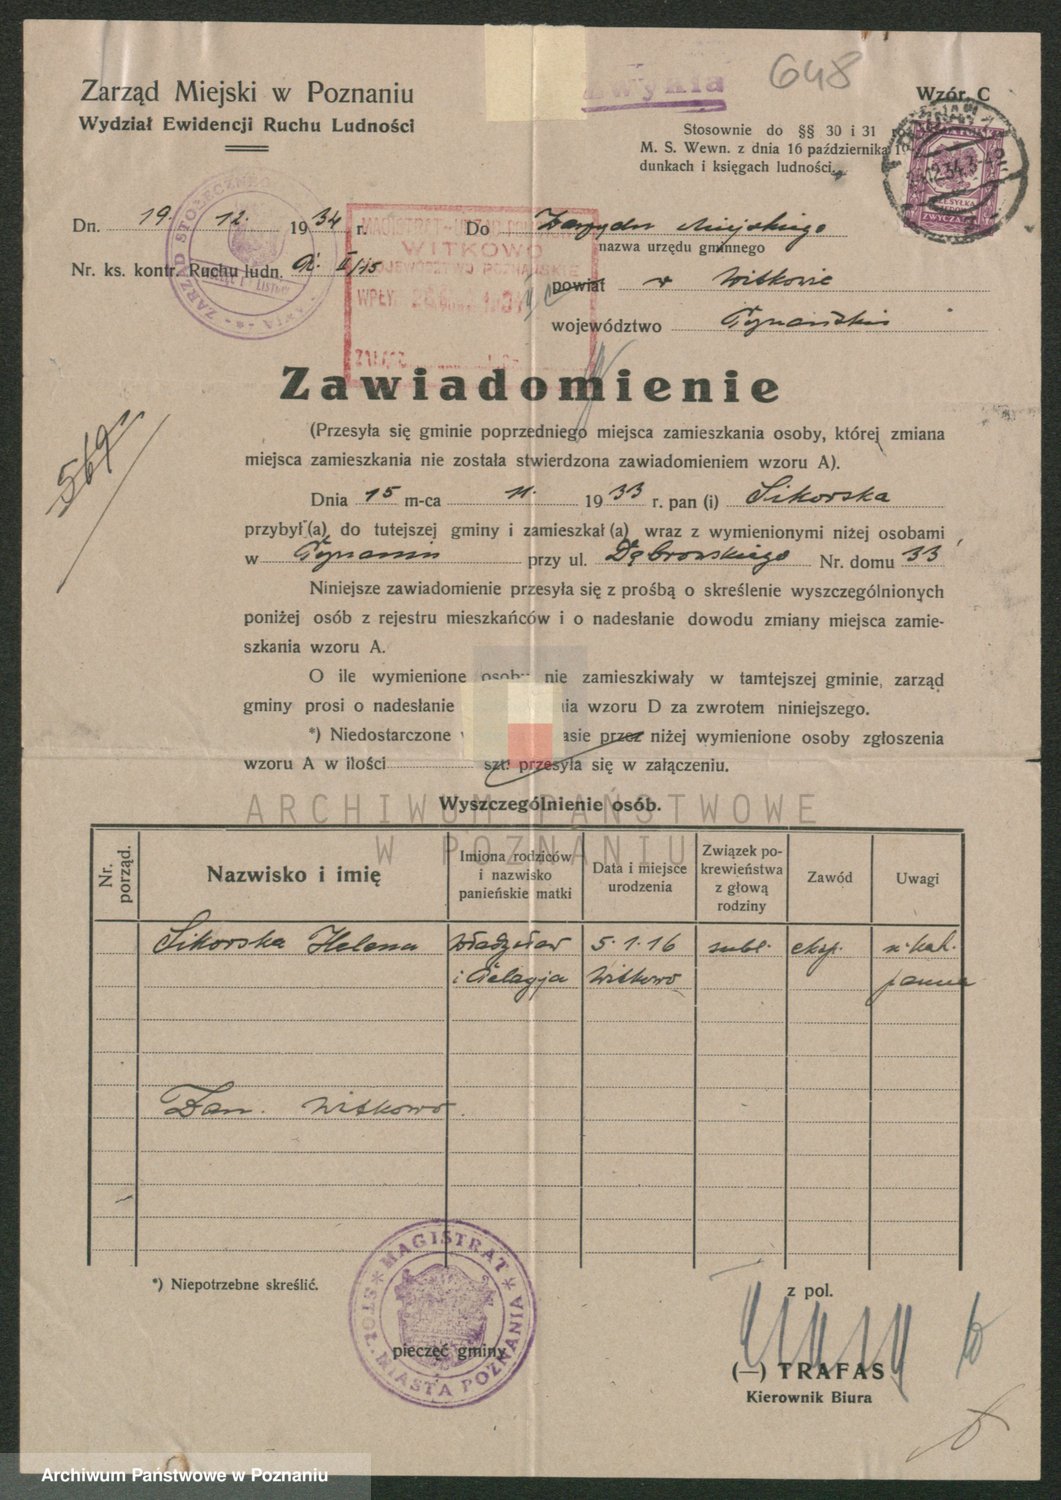 648
Zarząd Miejski w Poznaniu
Wydział Ewidencji Ruchu Ludności
Zwykła
Wzór C
Stosownie do §§ 30 i 31
M. S. Wewn. z dnia 16 października
dunkach i księgach ludności.
Dn. 19. 12. 1934 r.
Do Zarządu Miejskiego
nazwa urzędu gminnego
Nr. ks. kontr. Ruchu ludn.
powiat w Witkowie
województwo Poznańskie
MAGISTRAT
WITKOWO
WOJEWÓDZTWO POZNAŃSKIE
WPŁY.
Zawiadomienie
(Przesyła się gminie poprzedniego miejsca zamieszkania osoby, której zmiana
miejsca zamieszkania nie została stwierdzona zawiadomieniem wzoru A).
569
Dnia 15 m-ca 11. 1933 r. pan (i) Sikorska
przybył (a) do tutejszej gminy i zamieszkał (a) wraz z wymienionymi niżej osobami
w Poznaniu przy ul. Dąbrowskiego Nr. domu 33
Niniejsze zawiadomienie przesyła się z prośbą o skreślenie wyszczególnionych
poniżej osób z rejestru mieszkańców i o nadesłanie dowodu zmiany miejsca zamie-
szkania wzoru A.
O ile wymienione osoby nie zamieszkiwały w tamtejszej gminie, zarząd
gminy prosi o nadesłanie wzoru D za zwrotem niniejszego.
*) Niedostarczone przez niżej wymienione osoby zgłoszenia
wzoru A w ilości szt. przesyła się w załączeniu.
ARCHIWUM PAŃSTWOWE
W POZNANIU
Wyszczególnienie osób.
Nr. porząd.
Nazwisko i imię
Imiona rodziców
i nazwisko
panieńskie matki
Data i miejsce
urodzenia
Związek po-
krewieństwa
z głową
rodziny
Zawód
Uwagi
Sikorska Helena Władysław 5.1.16 subl. eksp. rz. kat.
i Pelagja Witkowo panna
Zam. Witkowo.
*) Niepotrzebne skreślić.
MAGISTRAT
STOŁ. MIASTA POZNANIA
pieczęć gminy
z pol.
(—) TRAFAS
Kierownik Biura
Archiwum Państwowe w Poznaniu